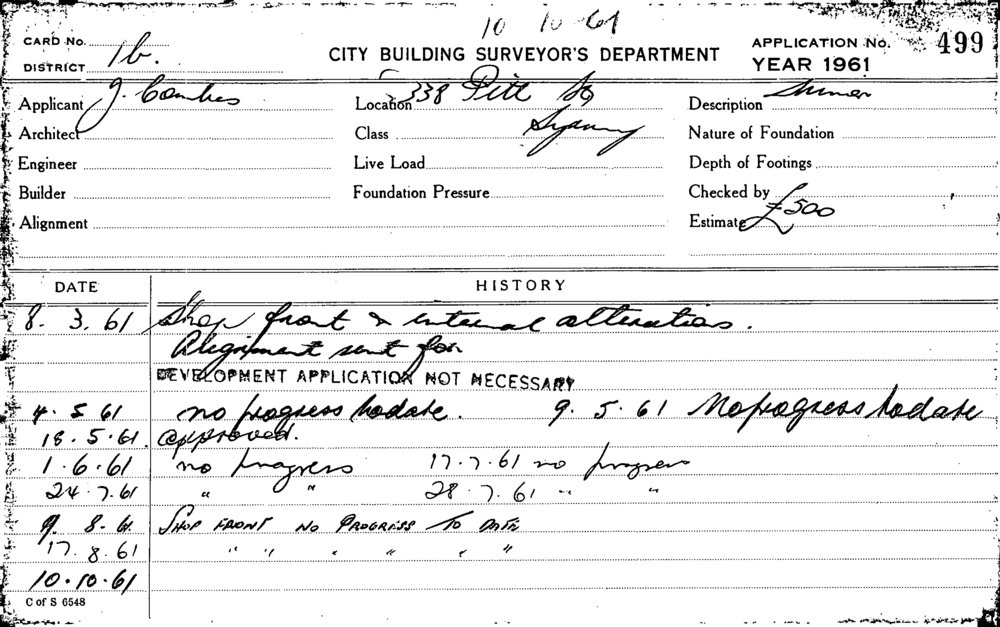 10 10 61
CARD No. 1b.
DISTRICT
CITY BUILDING SURVEYOR'S DEPARTMENT
APPLICATION No. 499
YEAR 1961
Applicant J. Combes
Location 338 Pitt St
Description
Architect
Class Sydney
Nature of Foundation
Engineer
Live Load
Depth of Footings
Builder
Foundation Pressure
Checked by
Alignment
Estimate £500
DATE HISTORY
8. 3. 61 Shop front & internal alterations.
Alignment sent for
DEVELOPMENT APPLICATION NOT NECESSARY
4. 5 61 no progress todate. 9. 5. 61 No progress todate
18. 5. 61. approved.
1. 6. 61 no progress 17. 7. 61 no progress
24. 7. 61 " " 28. 7. 61 " "
9. 8. 61 SHOP FRONT NO PROGRESS TO DATE
17. 8. 61 " " " " " "
10. 10. 61
C of S 6548